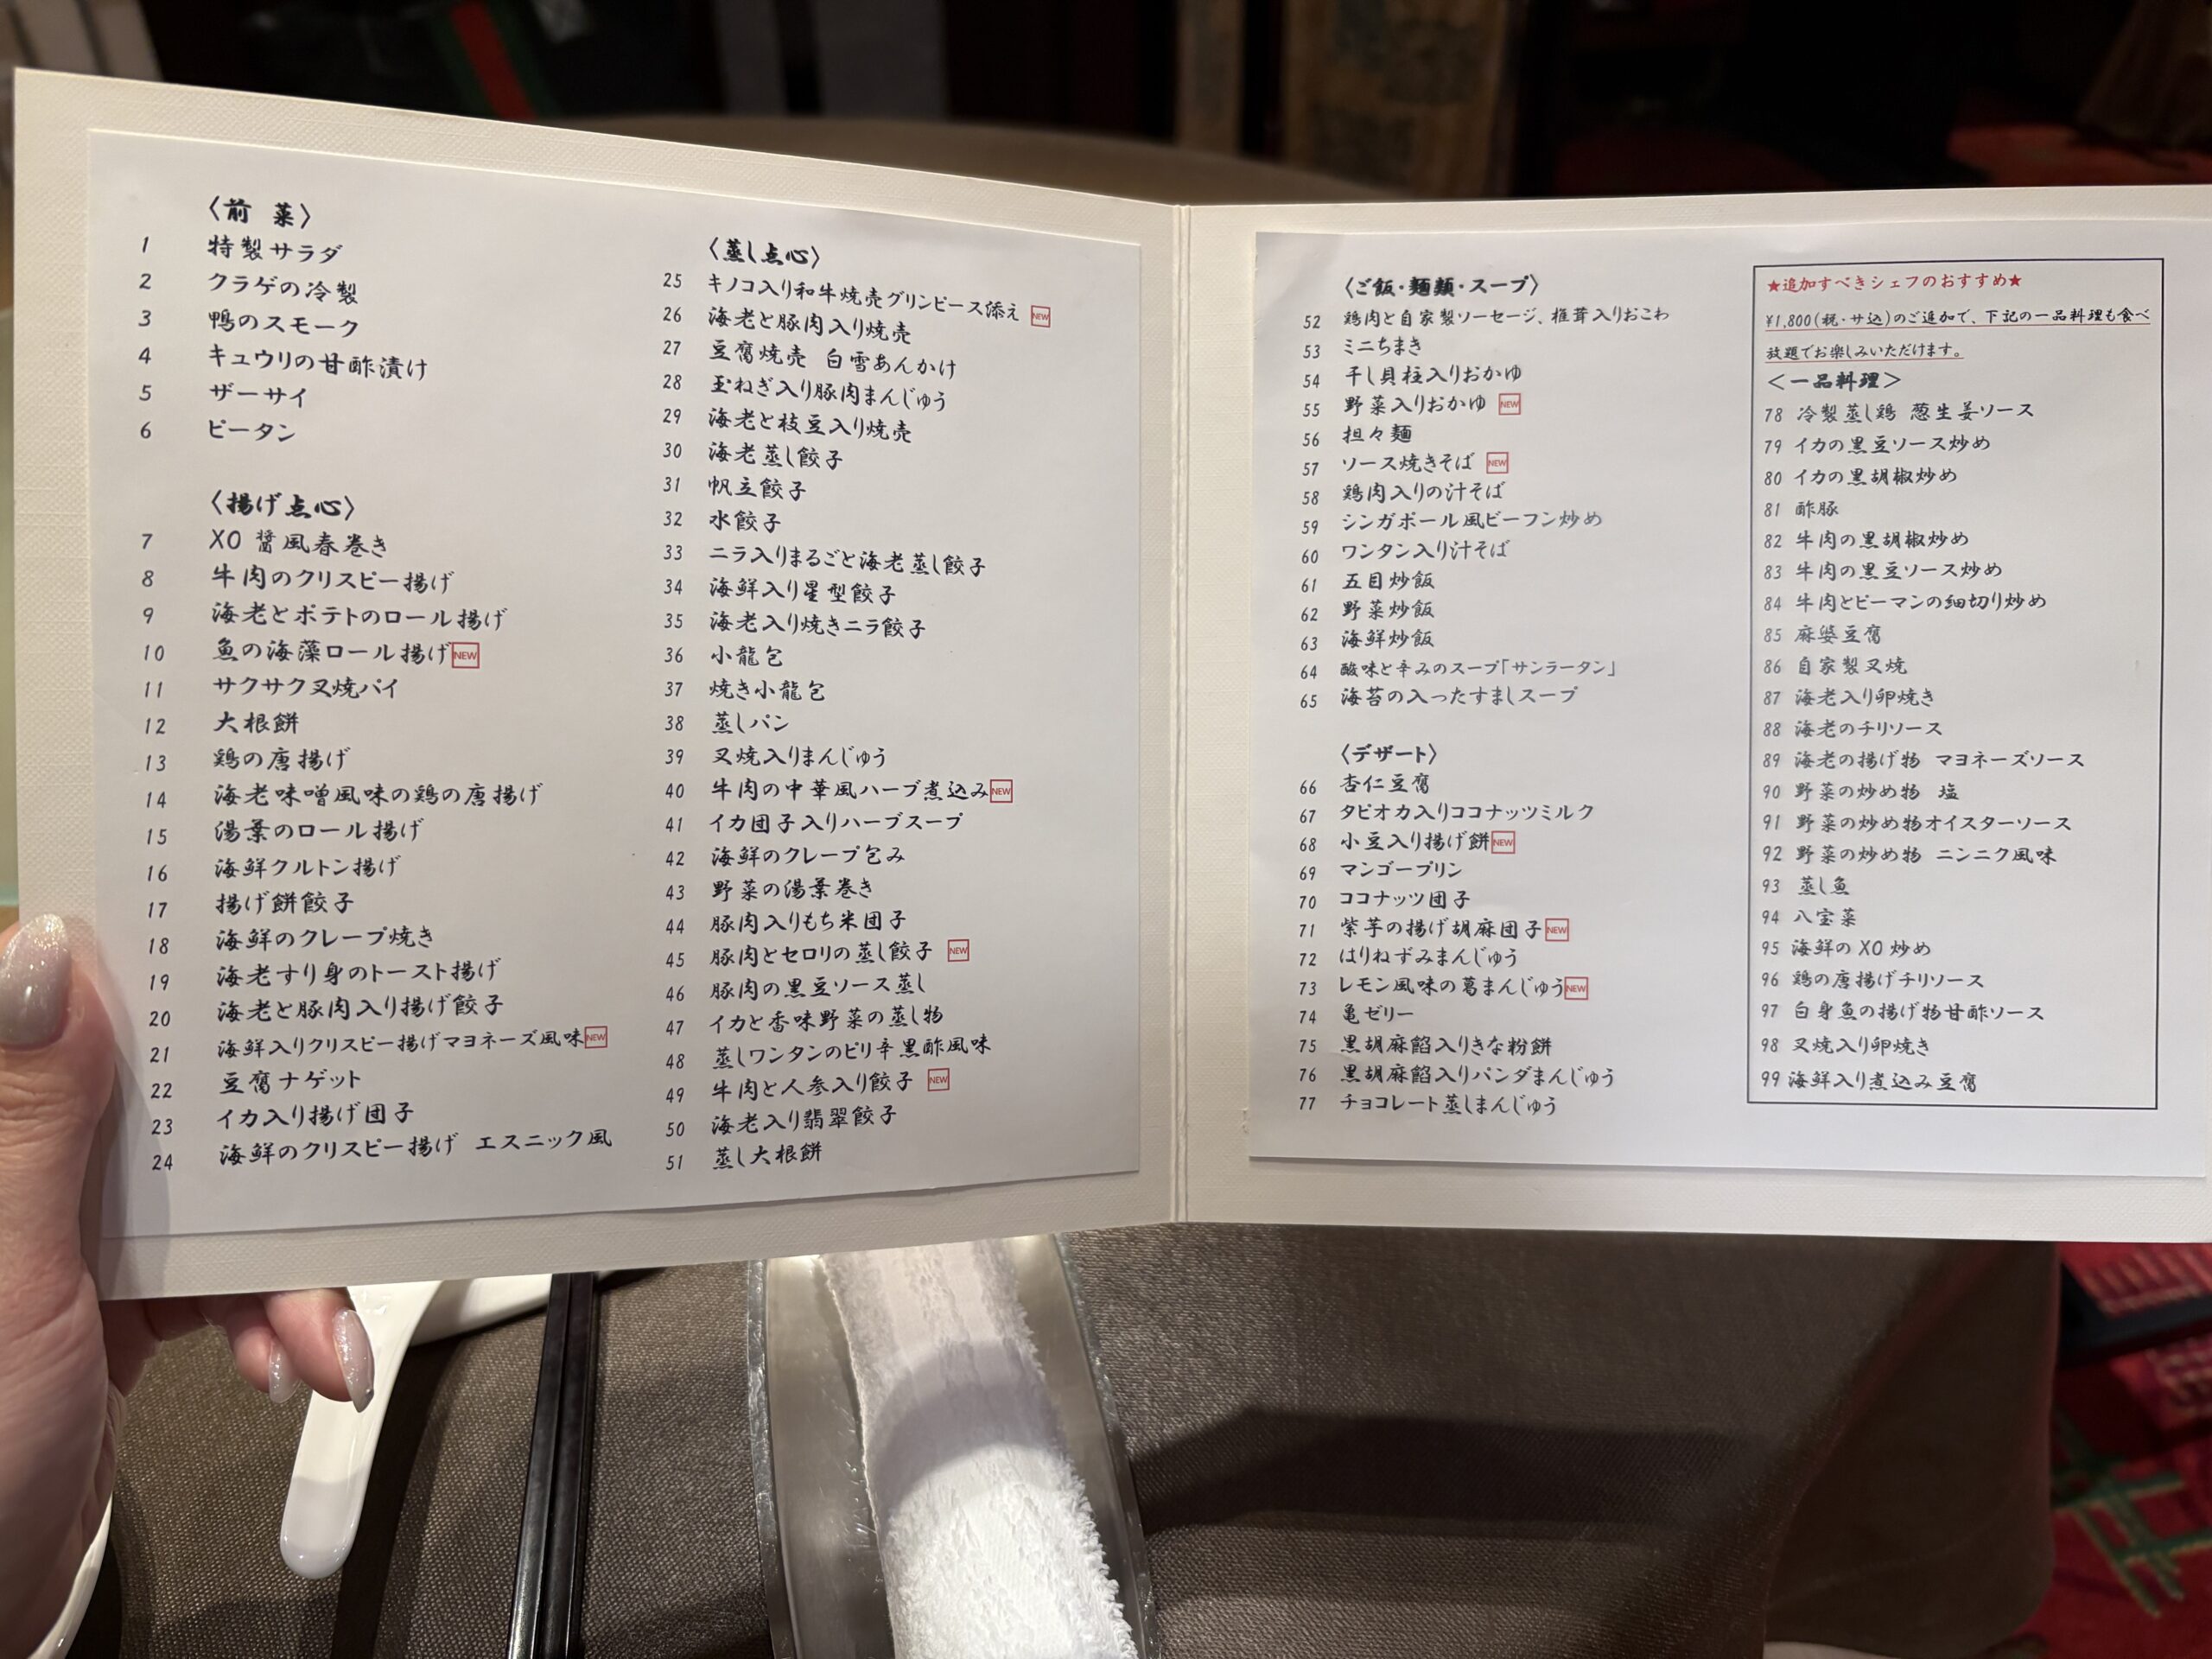 〈前 菜〉
1 特製サラダ
2 クラゲの冷製
3 鴨のスモーク
4 キュウリの甘酢漬け
5 ザーサイ
6 ピータン
〈揚げ点心〉
7 XO 醤風春巻き
8 牛肉のクリスピー揚げ
9 海老とポテトのロール揚げ
10 魚の海藻ロール揚げ NEW
11 サクサク叉焼パイ
12 大根餅
13 鶏の唐揚げ
14 海老味噌風味の鶏の唐揚げ
15 湯葉のロール揚げ
16 海鮮クルトン揚げ
17 揚げ餅餃子
18 海鮮のクレープ焼き
19 海老すり身のトースト揚げ
20 海老と豚肉入り揚げ餃子
21 海鮮入りクリスピー揚げマヨネーズ風味 NEW
22 豆腐ナゲット
23 イカ入り揚げ団子
24 海鮮のクリスピー揚げ エスニック風
〈蒸し点心〉
25 キノコ入り和牛焼売グリンピース添え NEW
26 海老と豚肉入り焼売
27 豆腐焼売 白雪あんかけ
28 玉ねぎ入り豚肉まんじゅう
29 海老と枝豆入り焼売
30 海老蒸し餃子
31 帆立餃子
32 水餃子
33 ニラ入りまるごと海老蒸し餃子
34 海鮮入り星型餃子
35 海老入り焼きニラ餃子
36 小龍包
37 焼き小龍包
38 蒸しパン
39 叉焼入りまんじゅう
40 牛肉の中華風ハーブ煮込み NEW
41 イカ団子入りハーブスープ
42 海鮮のクレープ包み
43 野菜の湯葉巻き
44 豚肉入りもち米団子
45 豚肉とセロリの蒸し餃子 NEW
46 豚肉の黒豆ソース蒸し
47 イカと香味野菜の蒸し物
48 蒸しワンタンのピリ辛黒酢風味
49 牛肉と人参入り餃子 NEW
50 海老入り翡翠餃子
51 蒸し大根餅
〈ご飯・麺類・スープ〉
52 鶏肉と自家製ソーセージ、椎茸入りおこわ
53 ミニちまき
54 干し貝柱入りおかゆ
55 野菜入りおかゆ NEW
56 担々麺
57 ソース焼きそば NEW
58 鶏肉入りの汁そば
59 シンガポール風ビーフン炒め
60 ワンタン入り汁そば
61 五目炒飯
62 野菜炒飯
63 海鮮炒飯
64 酸味と辛みのスープ「サンラータン」
65 海苔の入ったすましスープ
〈デザート〉
66 杏仁豆腐
67 タピオカ入りココナッツミルク
68 小豆入り揚げ餅 NEW
69 マンゴープリン
70 ココナッツ団子
71 紫芋の揚げ胡麻団子 NEW
72 はりねずみまんじゅう
73 レモン風味の葛まんじゅう NEW
74 亀ゼリー
75 黒胡麻餡入りきな粉餅
76 黒胡麻餡入りパンダまんじゅう
77 チョコレート蒸しまんじゅう
★追加すべきシェフのおすすめ★
¥1,800(税・サ込)のご追加で、下記の一品料理も食べ
放題でお楽しみいただけます。
＜一品料理＞
78 冷製蒸し鶏 葱生姜ソース
79 イカの黒豆ソース炒め
80 イカの黒胡椒炒め
81 酢豚
82 牛肉の黒胡椒炒め
83 牛肉の黒豆ソース炒め
84 牛肉とピーマンの細切り炒め
85 麻婆豆腐
86 自家製叉焼
87 海老入り卵焼き
88 海老のチリソース
89 海老の揚げ物 マヨネーズソース
90 野菜の炒め物 塩
91 野菜の炒め物オイスターソース
92 野菜の炒め物 ニンニク風味
93 蒸し魚
94 八宝菜
95 海鮮の XO 炒め
96 鶏の唐揚げチリソース
97 白身魚の揚げ物甘酢ソース
98 叉焼入り卵焼き
99 海鮮入り煮込み豆腐